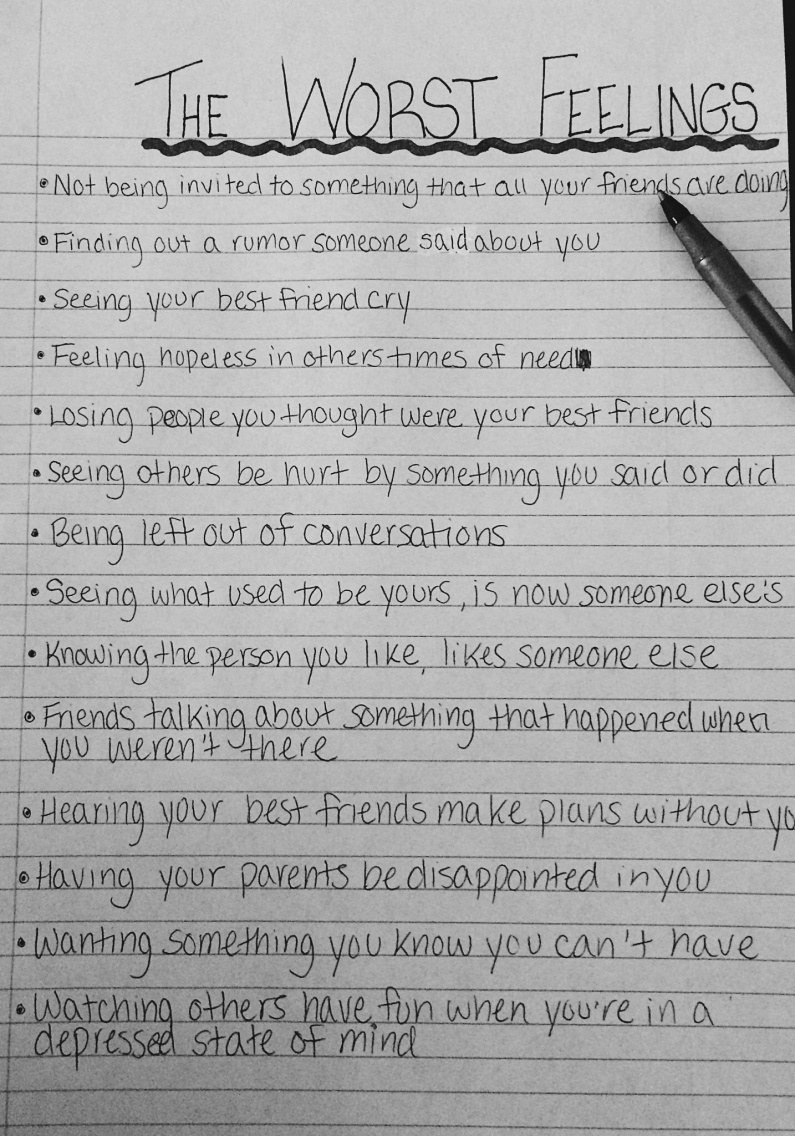 THE WORST FEELINGS
• Not being invited to something that all your friends are doing
• Finding out a rumor someone said about you
• Seeing your best friend cry
• Feeling hopeless in others times of need
• Losing people you thought were your best friends
• Seeing others be hurt by something you said or did
• Being left out of conversations
• Seeing what used to be yours, is now someone else's
• Knowing the person you like, likes someone else
• Friends talking about something that happened when
you weren't there
• Hearing your best friends make plans without yo
• Having your parents be disappointed in you
• Wanting something you know you can't have
• Watching others have fun when you're in a
depressed state of mind